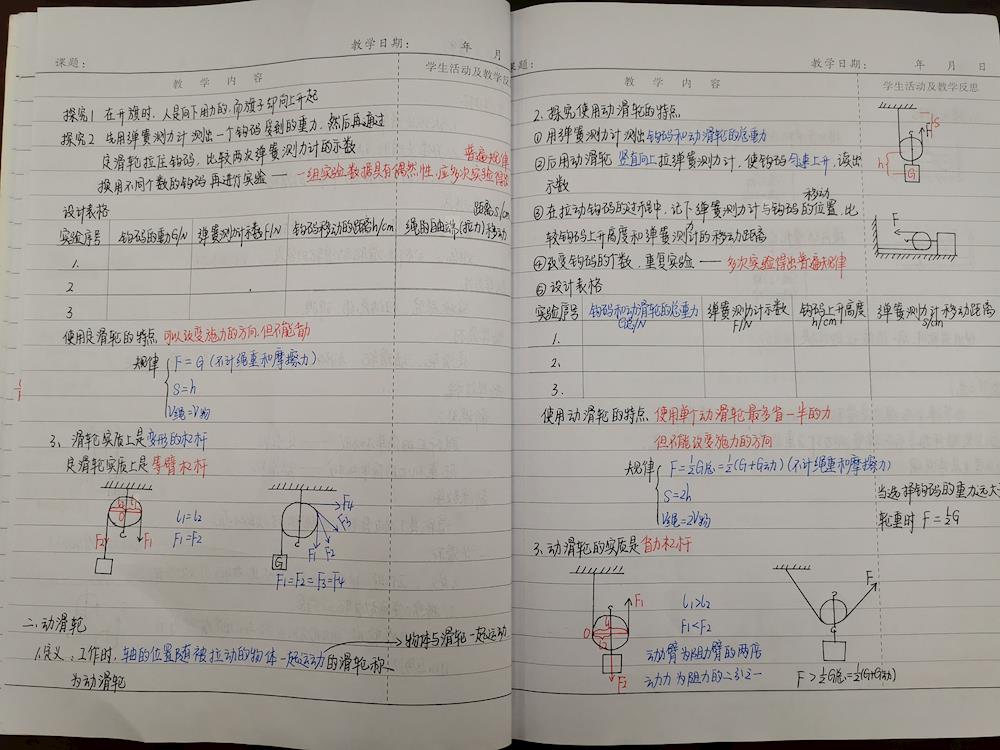 教学日期： 年 月
课题：
教 学 内 容 学生活动及教学反
探究1 在升旗时，人是向下用力的，而旗子却向上升起
探究2 先用弹簧测力计测出一个钩码受到的重力，然后再通过
定滑轮拉住钩码，比较两次弹簧测力计的示数
普遍规律
换用不同个数的钩码再进行实验 — 一组实验数据具有偶然性，应多次实验得出
设计表格
距离s/cm
实验序号 钩码的重力G/N 弹簧测力计示数F/N 钩码移动的距离h/cm 绳的自由端(拉力)移动
1.
2
3
使用定滑轮的特点 可以改变施力的方向，但不能省力
规律 F=G (不计绳重和摩擦力)
S=h
V绳=V物
3、滑轮实质上是变形的杠杆
定滑轮实质上是等臂杠杆
l2 l1
O
F2 F1
l1=l2
F1=F2
F4
F3
F1 F2
G
F1=F2=F3=F4
二.动滑轮
物体与滑轮一起运动
1.定义：工作时，轴的位置随被拉动的物体一起运动的滑轮称
为动滑轮
课题： 教学日期： 年 月 日
教 学 内 容 学生活动及教学反思
2. 探究使用动滑轮的特点
①用弹簧测力计测出钩码和动滑轮的总重力
②后用动滑轮竖直向上拉弹簧测力计，使钩码匀速上升，读出
示数
移动
③在拉动钩码的过程中，记下弹簧测力计与钩码的位置，比
较钩码上升高度和弹簧测力计的移动距离
④改变钩码的个数，重复实验 — 多次实验得出普遍规律
⑤设计表格
F S
h
G
F
实验序号 钩码和动滑轮的总重力 弹簧测力计示数 钩码上升高度 弹簧测力计移动距离
G总/N F/N h/cm s/cm
1.
2、
3.
使用动滑轮的特点 使用单个动滑轮最多省一半的力
但不能改变施力的方向
规律 F=½G总=½(G+G动) (不计绳重和摩擦力)
S=2h
V绳=2V物
当选择钩码的重力远大于
轮重时 F=½G
3、动滑轮的实质是省力杠杆
F1
O
F2
l1>l2
F1<F2
动力臂为阻力臂的两倍
动力为阻力的二分之一
F
F>½G总=½(G+G动)